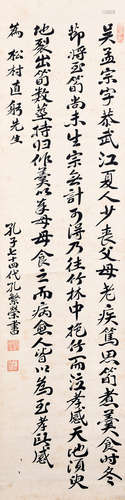 吴孟宗字恭武江夏人少丧父母老疾篤思筍煮羹食时冬
節將至筍尚未生宗無計可得乃往竹林中抱竹而泣孝感天地須臾
地裂出筍数莖持归作羹以奉母母食之而病愈人皆以為至孝所感
為松村道躬先生
孔子七十四代孔繁榮書